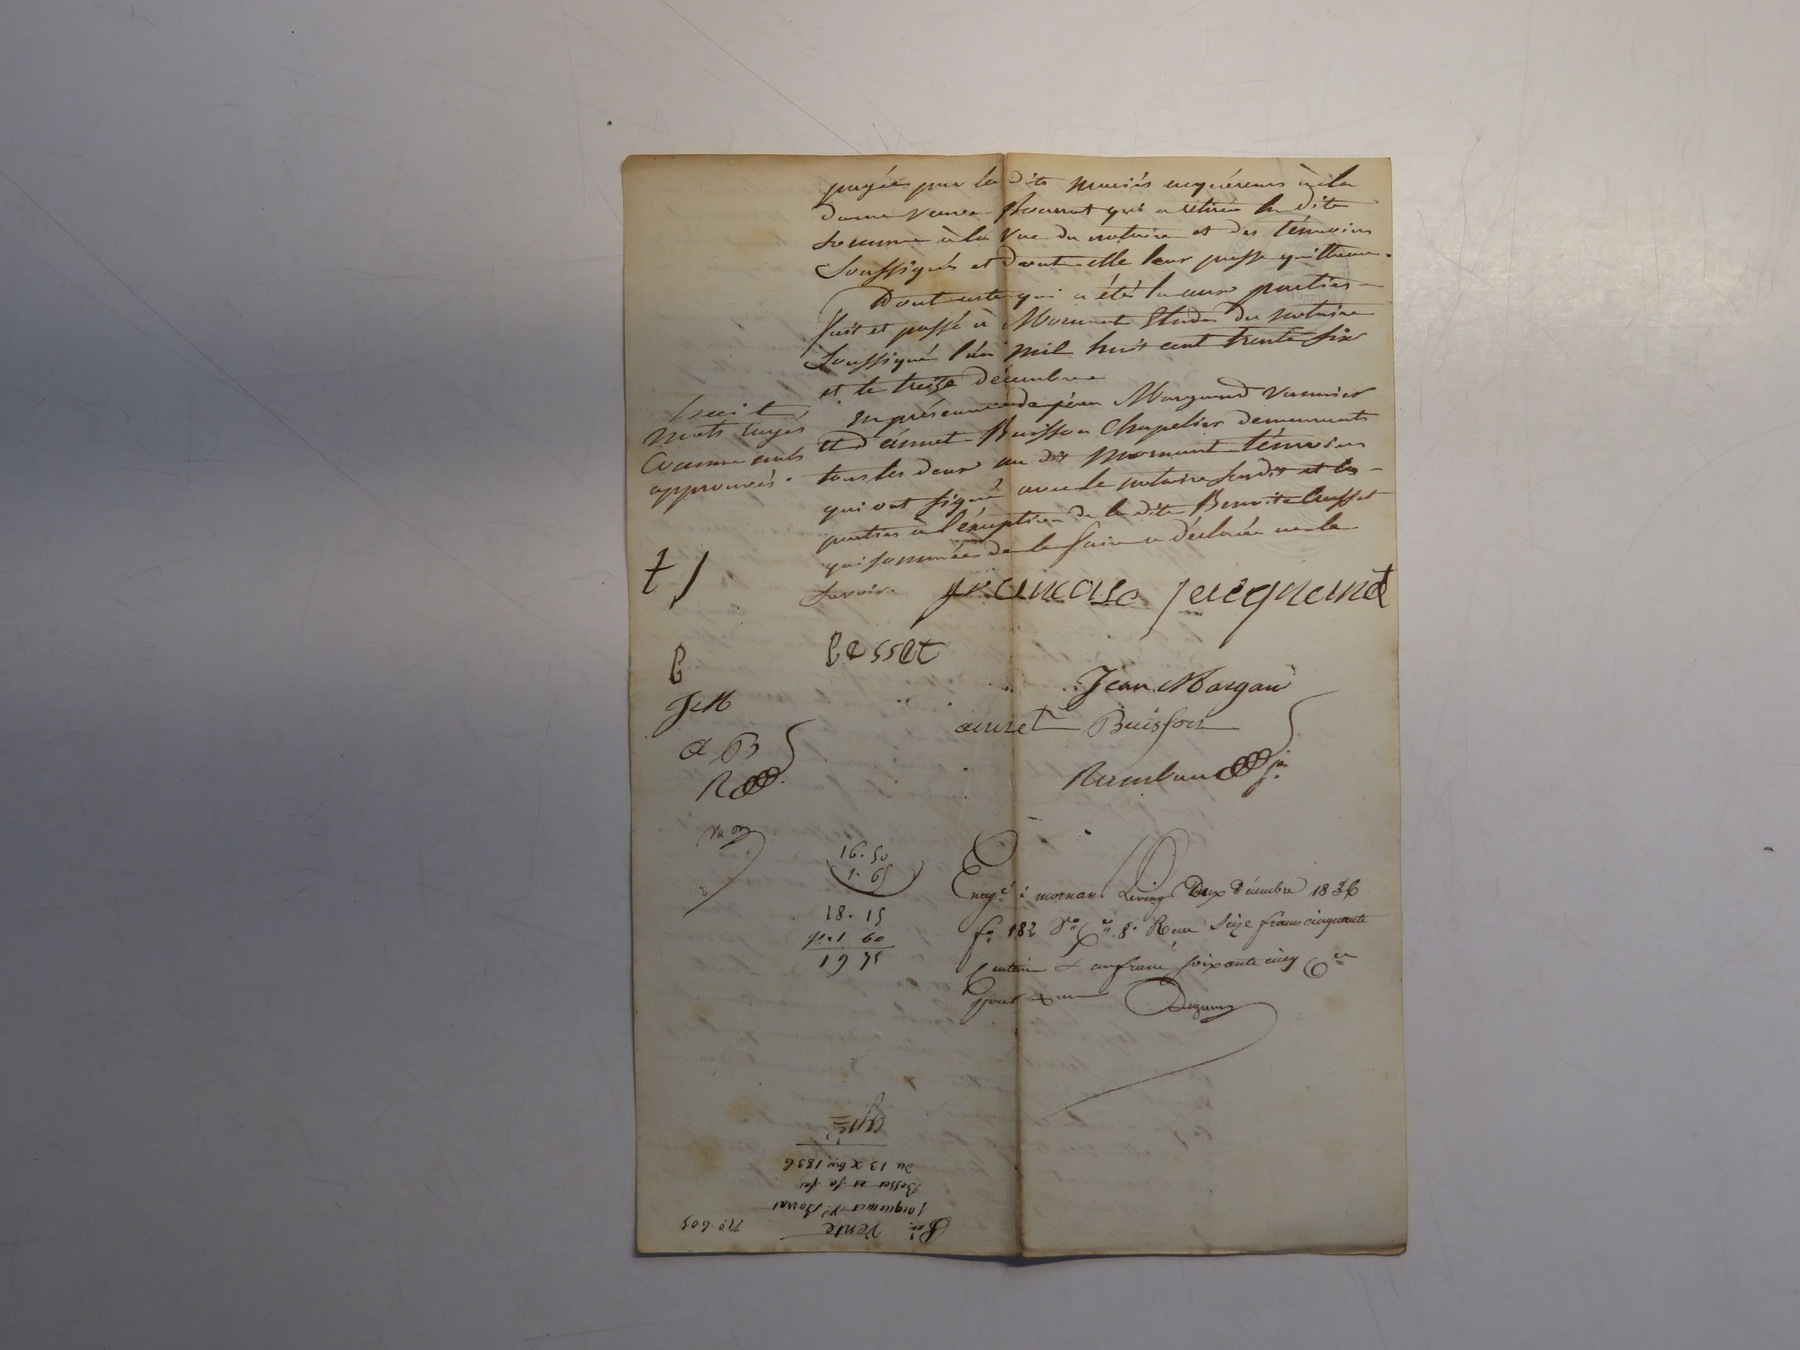 payée par les dits mariés acquéreurs à la
dame veuve qui a retiré la dite
somme à la vue du notaire et des témoins
soussignés et dont elle leur passe quittance.
Dont acte qui a été lu aux parties
fait et passé à Mornant Etude du notaire
soussigné l'an mil huit cent trente six
et le treize décembre
en présence de jean Margand
et d'annet Buisson Chapelier demeurants
tous les deux au dit Mornant témoins
qui ont signé avec le notaire susdit et les
parties à l'éxception de la dite Benoite
qui sommée de le faire a déclaré ne le
savoir.
huit
mots rayés
comme nuls
approuvés.
francoise jacquemet
t j
Besset
B
Jean Margan
J M
annet Buisson
a B
R
16.50
1.65
18.15
1 60
19 75
Enregé à mornant le vingt Deux décembre 1836
fo 182 Vo Co 8. Reçu seize francs cinquante
centimes & un franc soixante cinq Cen
pour
No 605
Vente
jacquemet Ve
Besset et sa fe
du 13 Xbre 1836